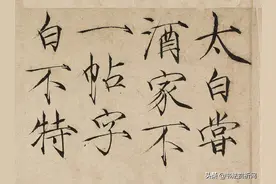 太白嘗
酒家不
一帖字
白不特
头条 @书法赏析网